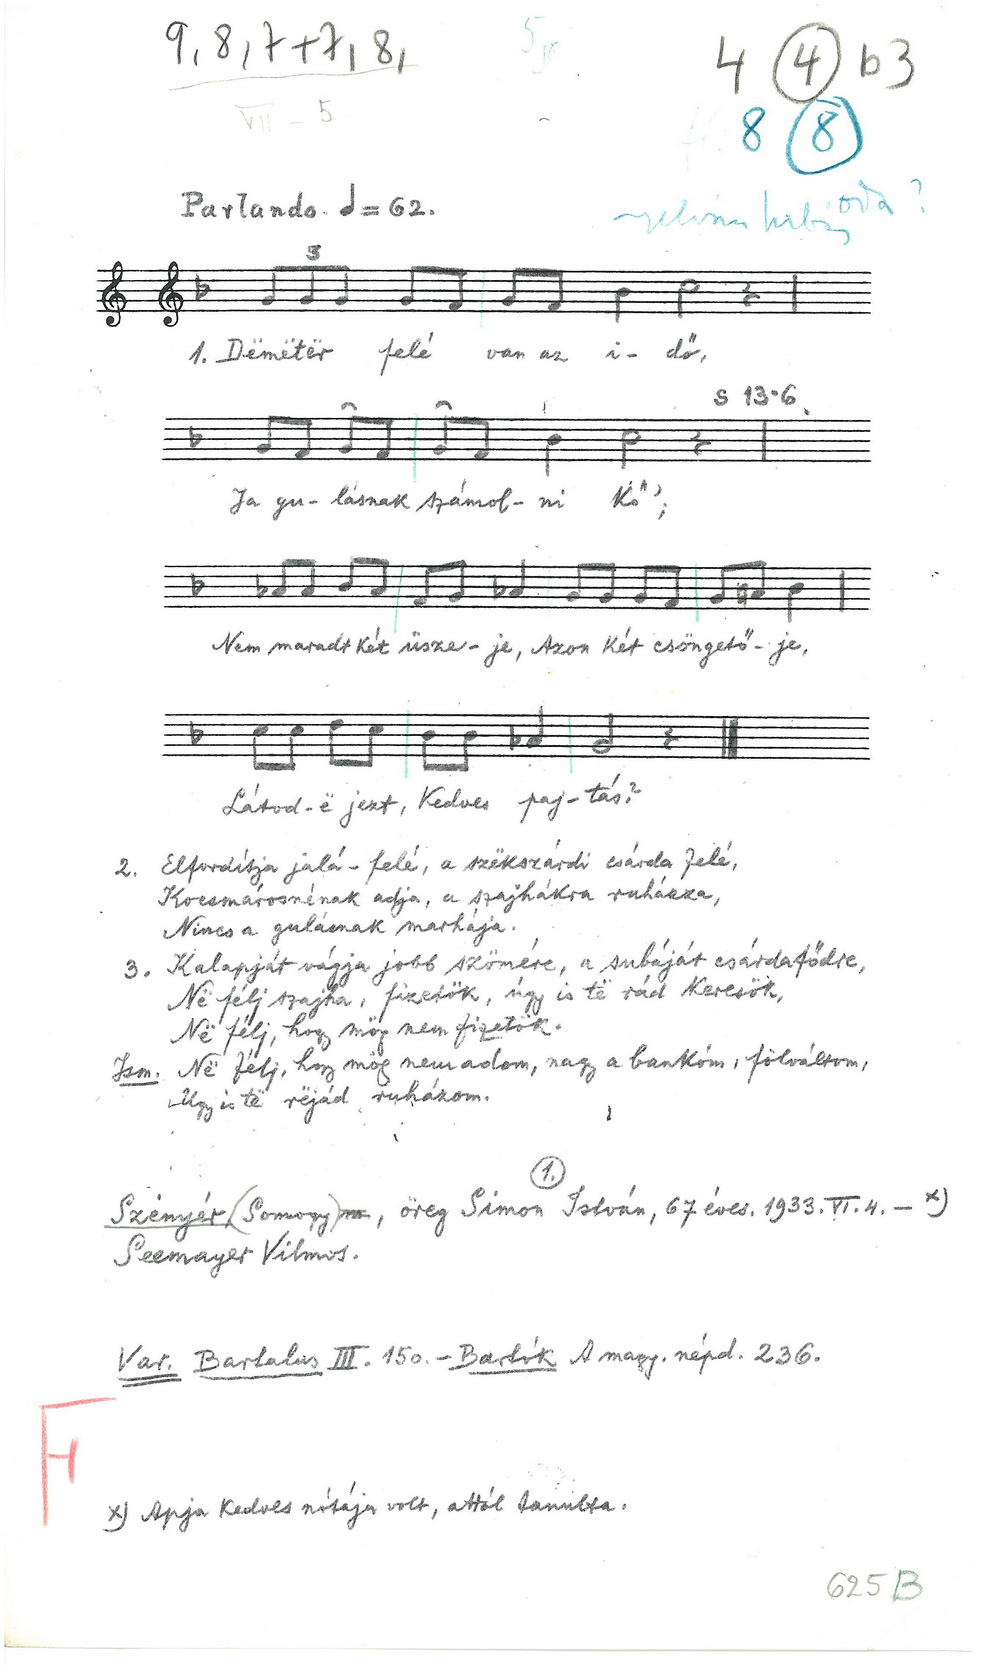 9, 8, 7+7, 8,
5
4 (4) b3
VII - 5
8 (8)
oda?
Parlando. ♩= 62.
3
1. Dëmëtër felé van az i - dő,
s 13-6.
Ja gu - lásnak számol - ni Kő";
Nem maradt két üsze - je, Azon két csöngető - je,
Látod - ë jezt, Kedves paj - tás?
2. Elfordítja jalá - felé, a szëkszárdi csárda felé,
Kocsmárosnénak adja, a szajhákra ruházza,
Nincs a gulásnak marhája.
3. Kalapját vágja jobb szömére, a subáját csárdafődre,
Në félj szajha, fizetök, úgy is të rád keresök,
Në félj, hogy mög nem fizetök.
Ism. Në félj, hogy mög nem adom, nagy a bankóm, fölváltom,
Úgy is të réjád ruházom.
1.
Szényér (Somogy), öreg Simon István, 67 éves. 1933. VI. 4. — x)
Seemayer Vilmos.
Var. Bartalus III. 150. - Bartók A magy. népd. 236.
F
x) Apja kedves nótája volt, attól tanulta.
625 B